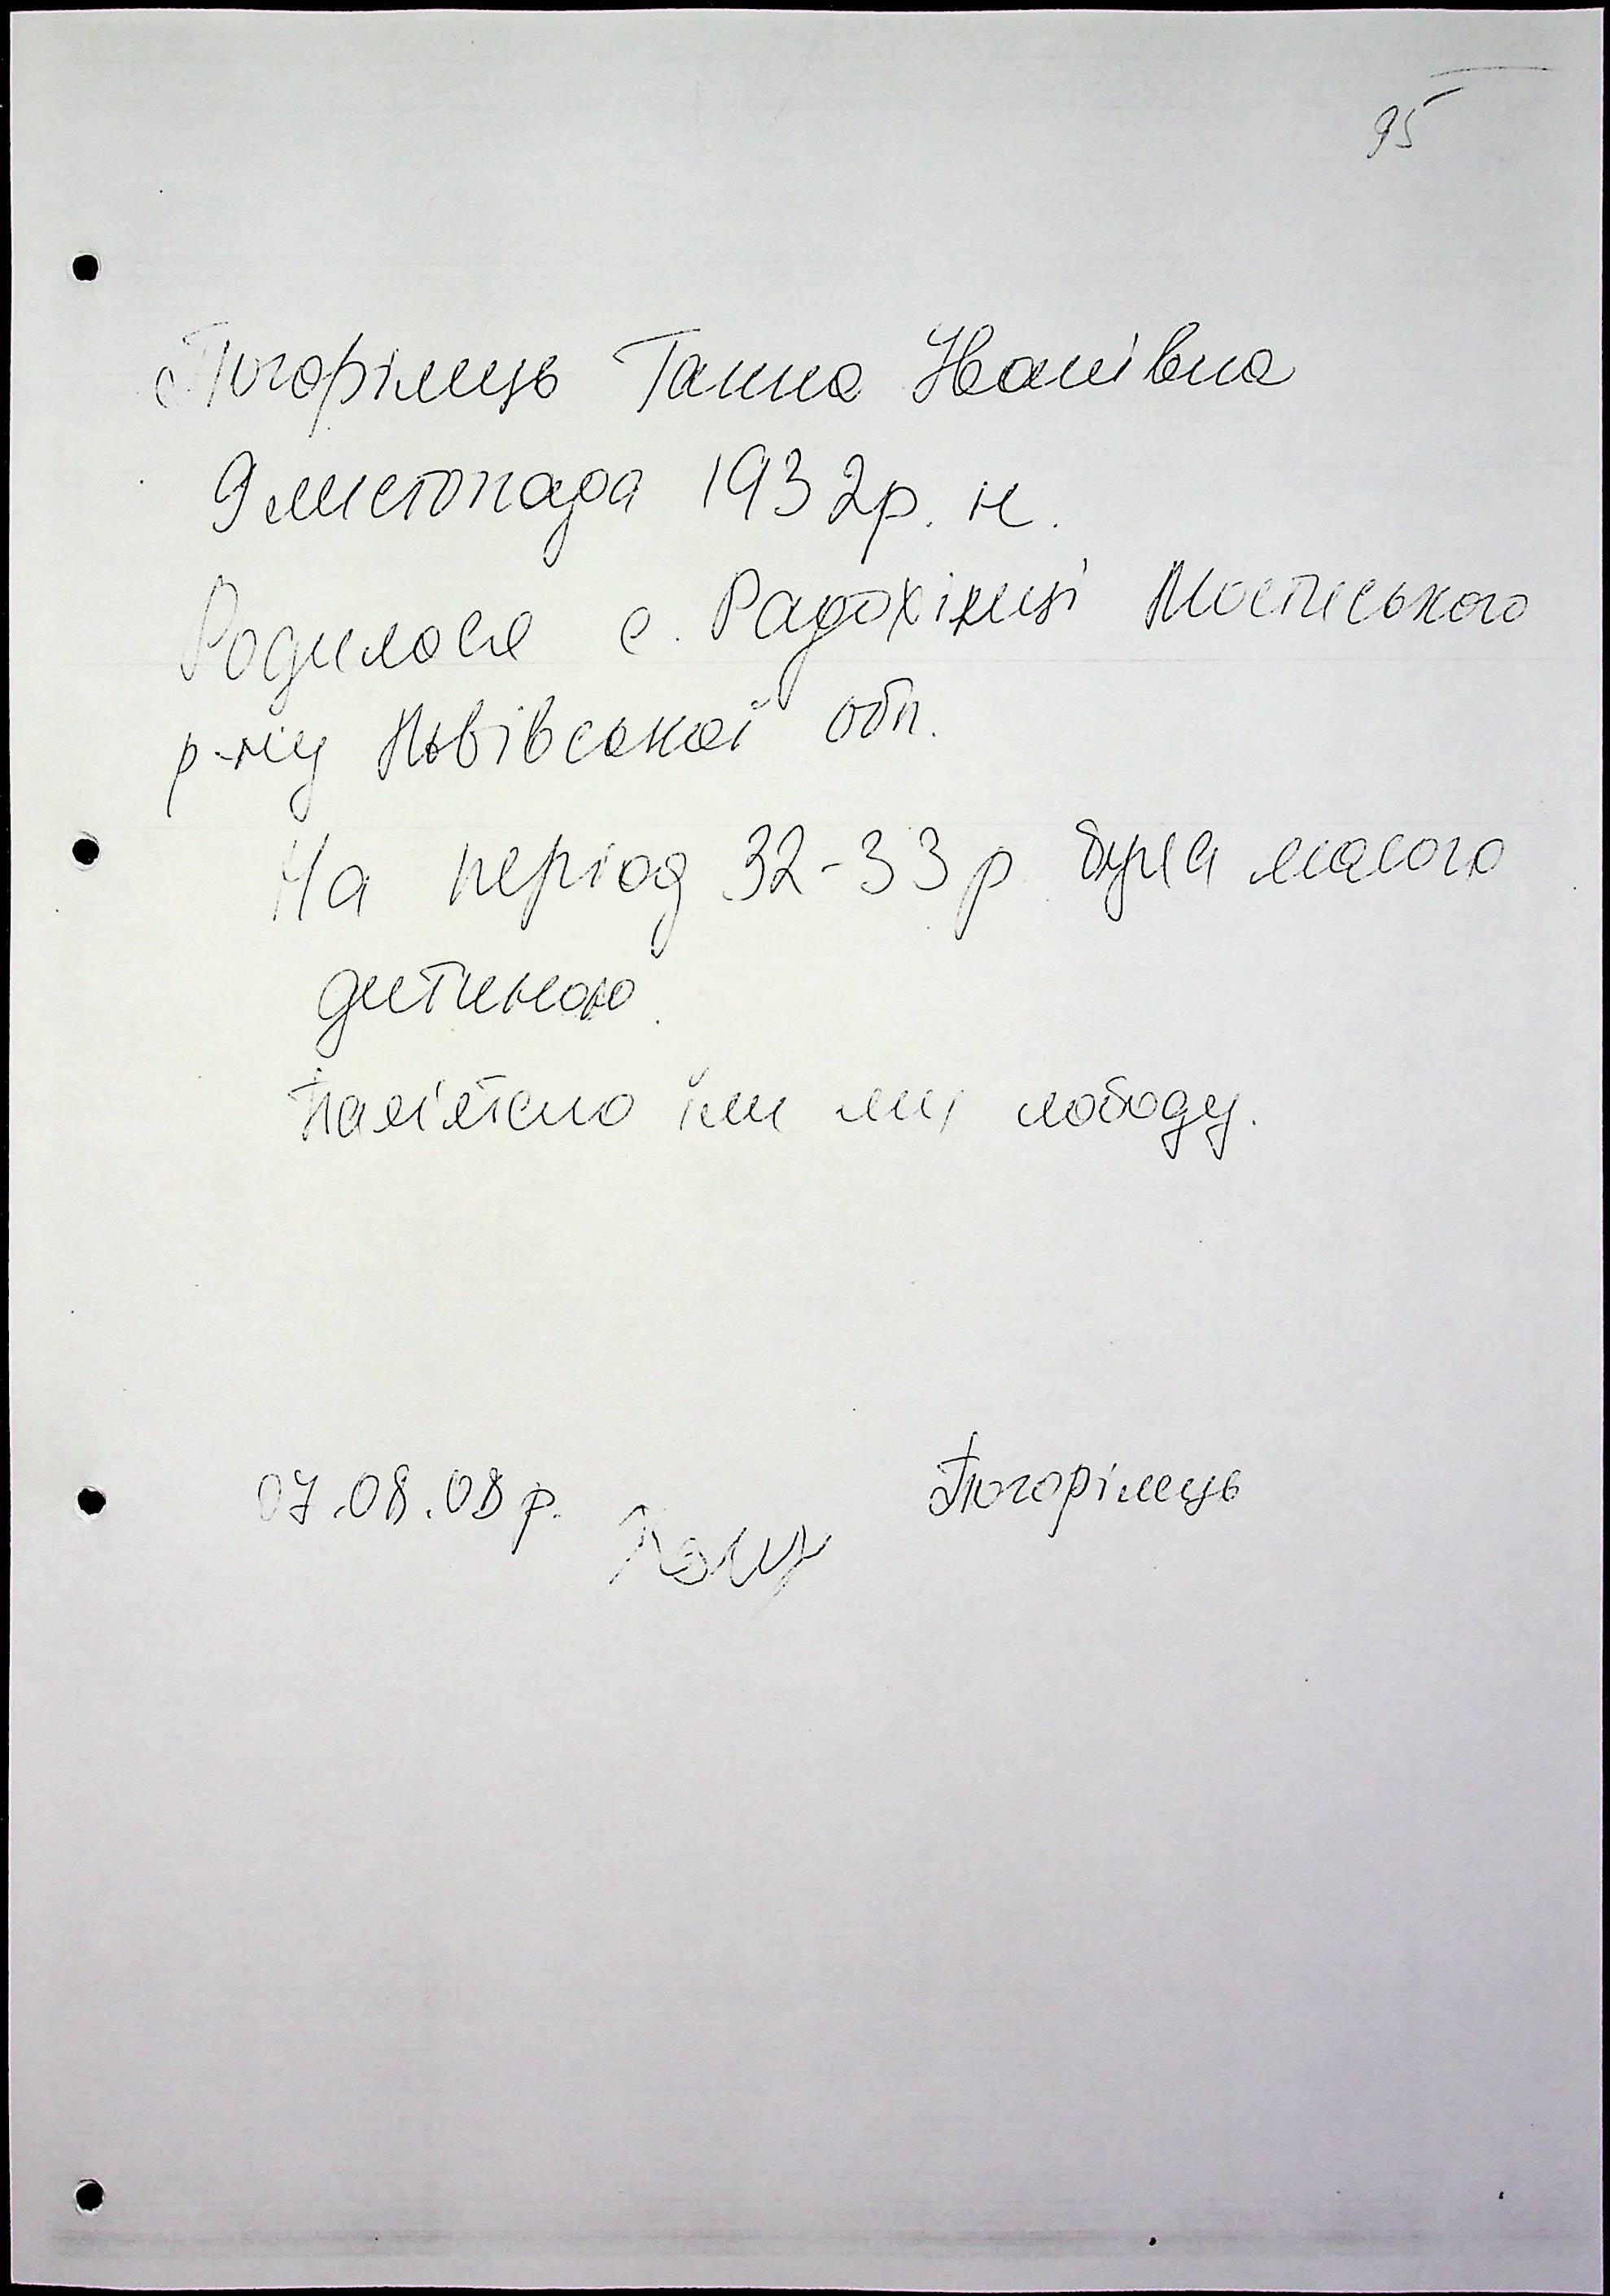 95
Погорілець Ганна Іванівна
9 листопада 1932 р. н.
Родилася с. Радохінці Мостиського
р-ну Львівської обл.
На період 32-33 р. була малою
дитиною.
Пам'ятаю їли ми лободу.
07.08.08 р. Погорілець